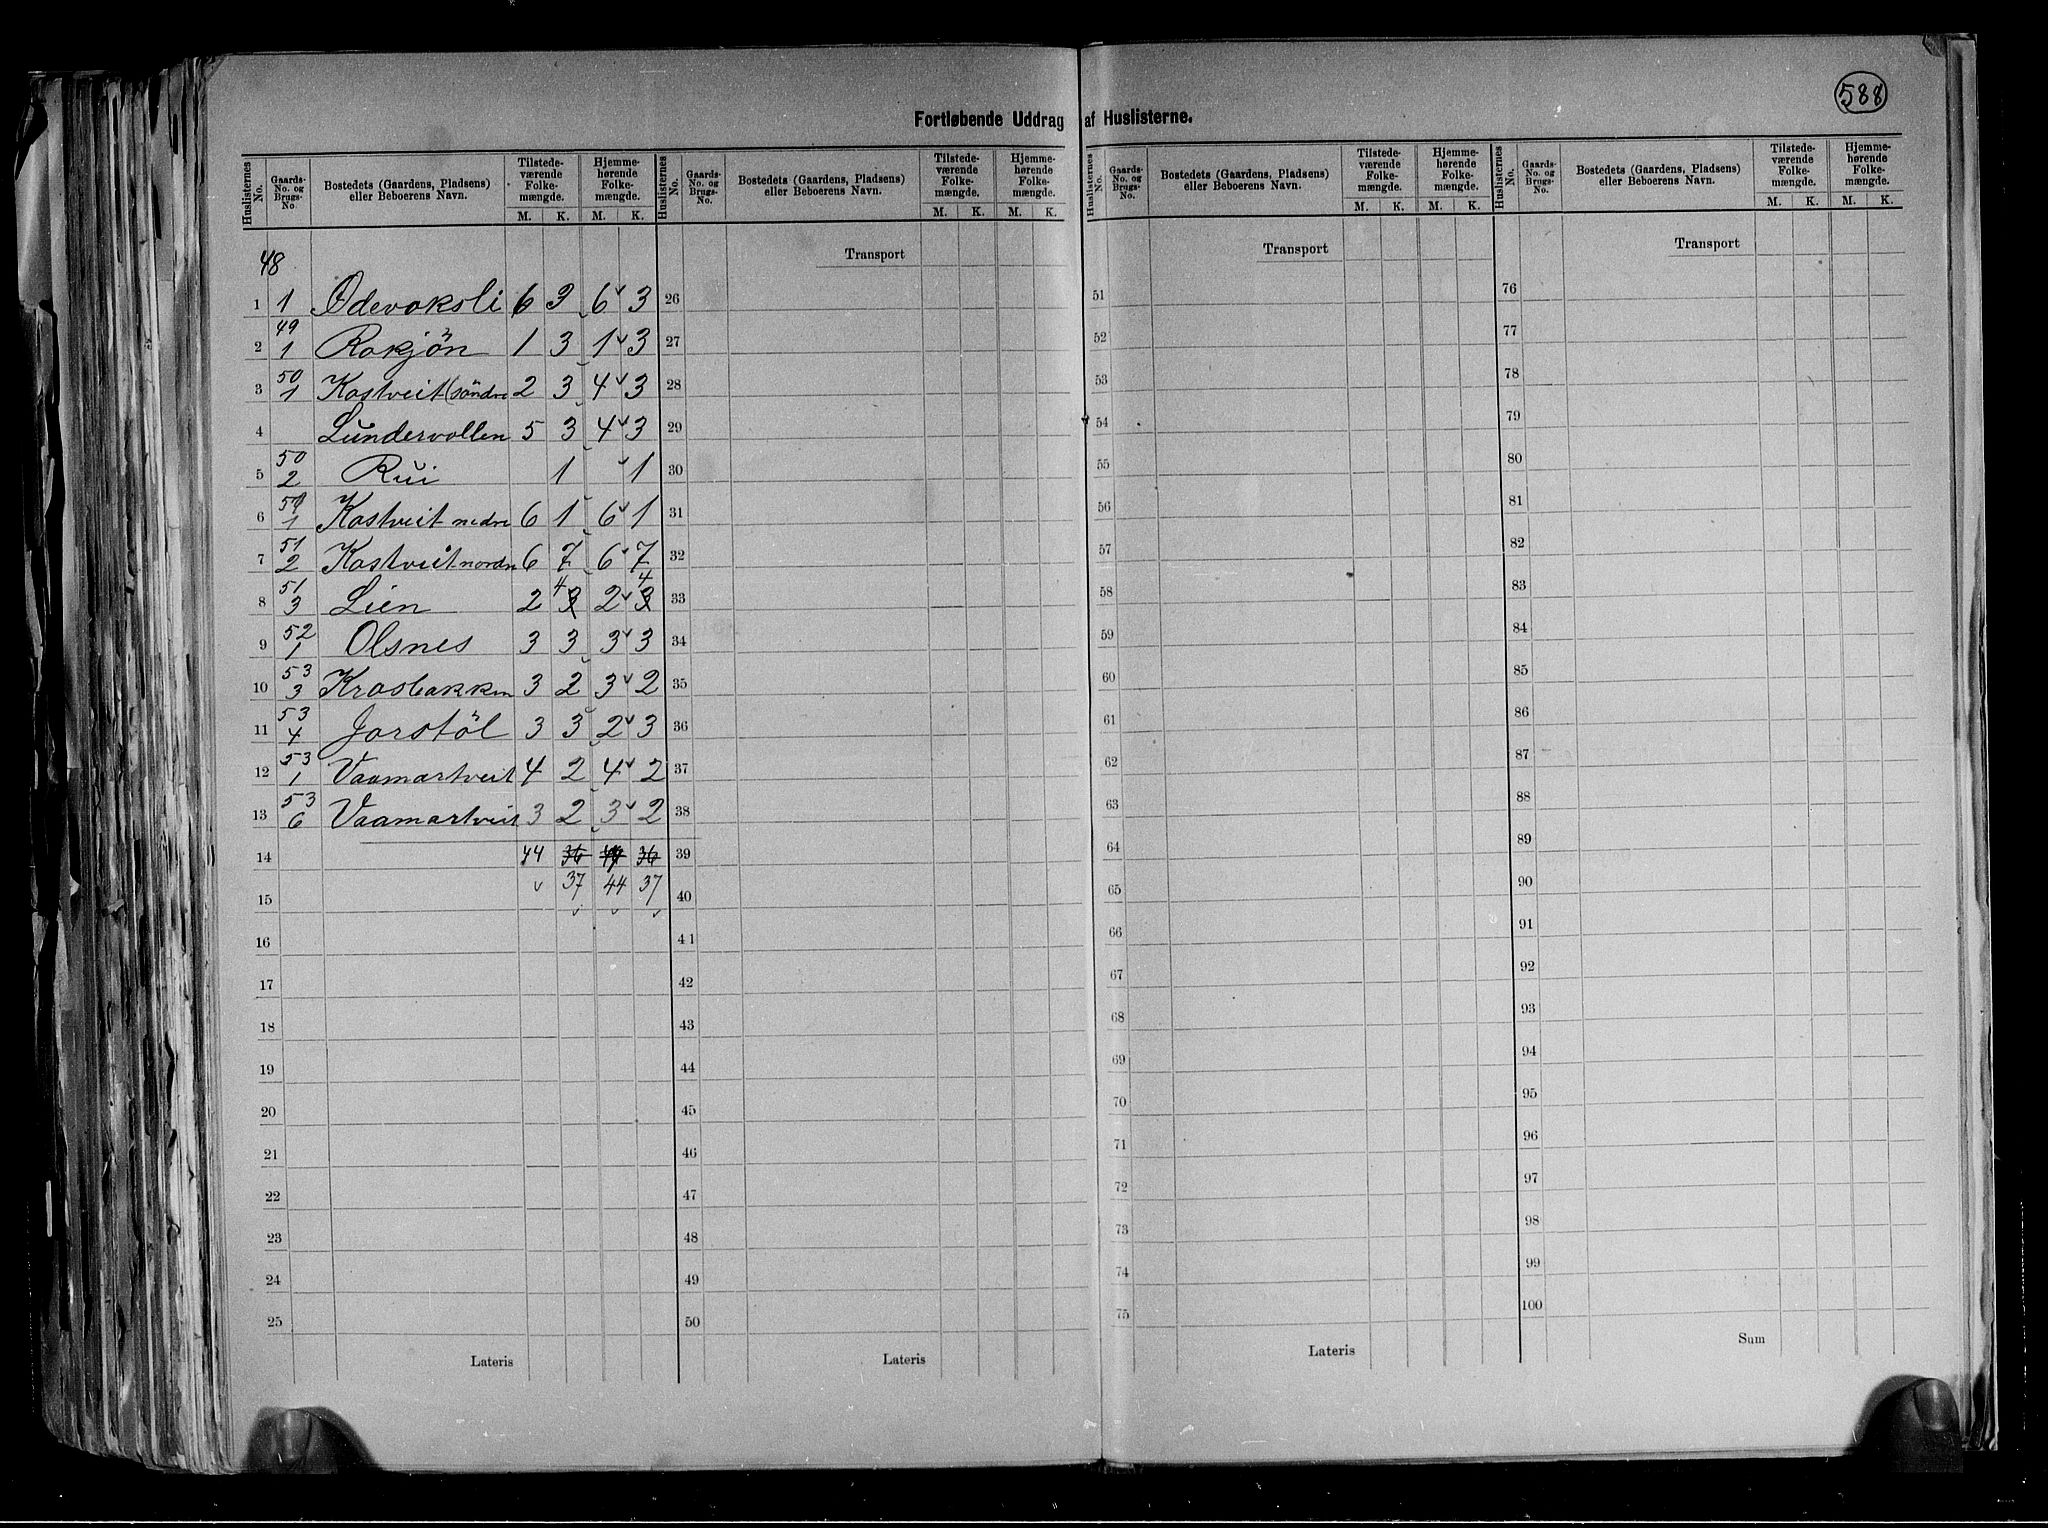 588
Fortløbende Uddrag af Huslisterne.
Huslisternes No. Gaards-No. og Brugs-No. Bostedets (Gaardens, Pladsens) eller Beboerens Navn. Tilstedeværende Folkemængde. M. K. Hjemmehørende Folkemængde. M. K.
Huslisternes No. Gaards-No. og Brugs-No. Bostedets (Gaardens, Pladsens) eller Beboerens Navn. Tilstedeværende Folkemængde. M. K. Hjemmehørende Folkemængde. M. K.
Huslisternes No. Gaards-No. og Brugs-No. Bostedets (Gaardens, Pladsens) eller Beboerens Navn. Tilstedeværende Folkemængde. M. K. Hjemmehørende Folkemængde. M. K.
Huslisternes No. Gaards-No. og Brugs-No. Bostedets (Gaardens, Pladsens) eller Beboerens Navn. Tilstedeværende Folkemængde. M. K. Hjemmehørende Folkemængde. M. K.
Transport Transport Transport
48
1 1 Odevoksli 6 3 6 3 26 51 76
49
2 1 Rokjön 1 3 1 3 27 52 77
50
3 1 Kostveit (söndre 2 3 4 3 28 53 78
4 Lundervollen 5 3 4 3 29 54 79
50
5 2 Rui 1 1 30 55 80
51
6 1 Kostveit nedre 6 1 6 1 31 56 81
51
7 2 Kostveit nordre 6 7 6 7 32 57 82
51 4 4
8 3 Lien 2 3 2 3 33 58 83
52
9 1 Olsnes 3 3 3 3 34 59 84
53
10 3 Krosbakken 3 2 3 2 35 60 85
53
11 4 Jorstöl 3 3 2 3 36 61 86
53
12 1 Vaamartveit 4 2 4 2 37 62 87
53
13 6 Vaamartveit 3 2 3 2 38 63 88
14 44 36 36 39 64 89
37 44 37
15 40 65 90
16 41 66 91
17 42 67 92
18 43 68 93
19 44 69 94
20 45 70 95
21 46 71 96
22 47 72 97
23 48 73 98
24 49 74 99
25 50 75 100
Lateris Lateris Lateris Sum